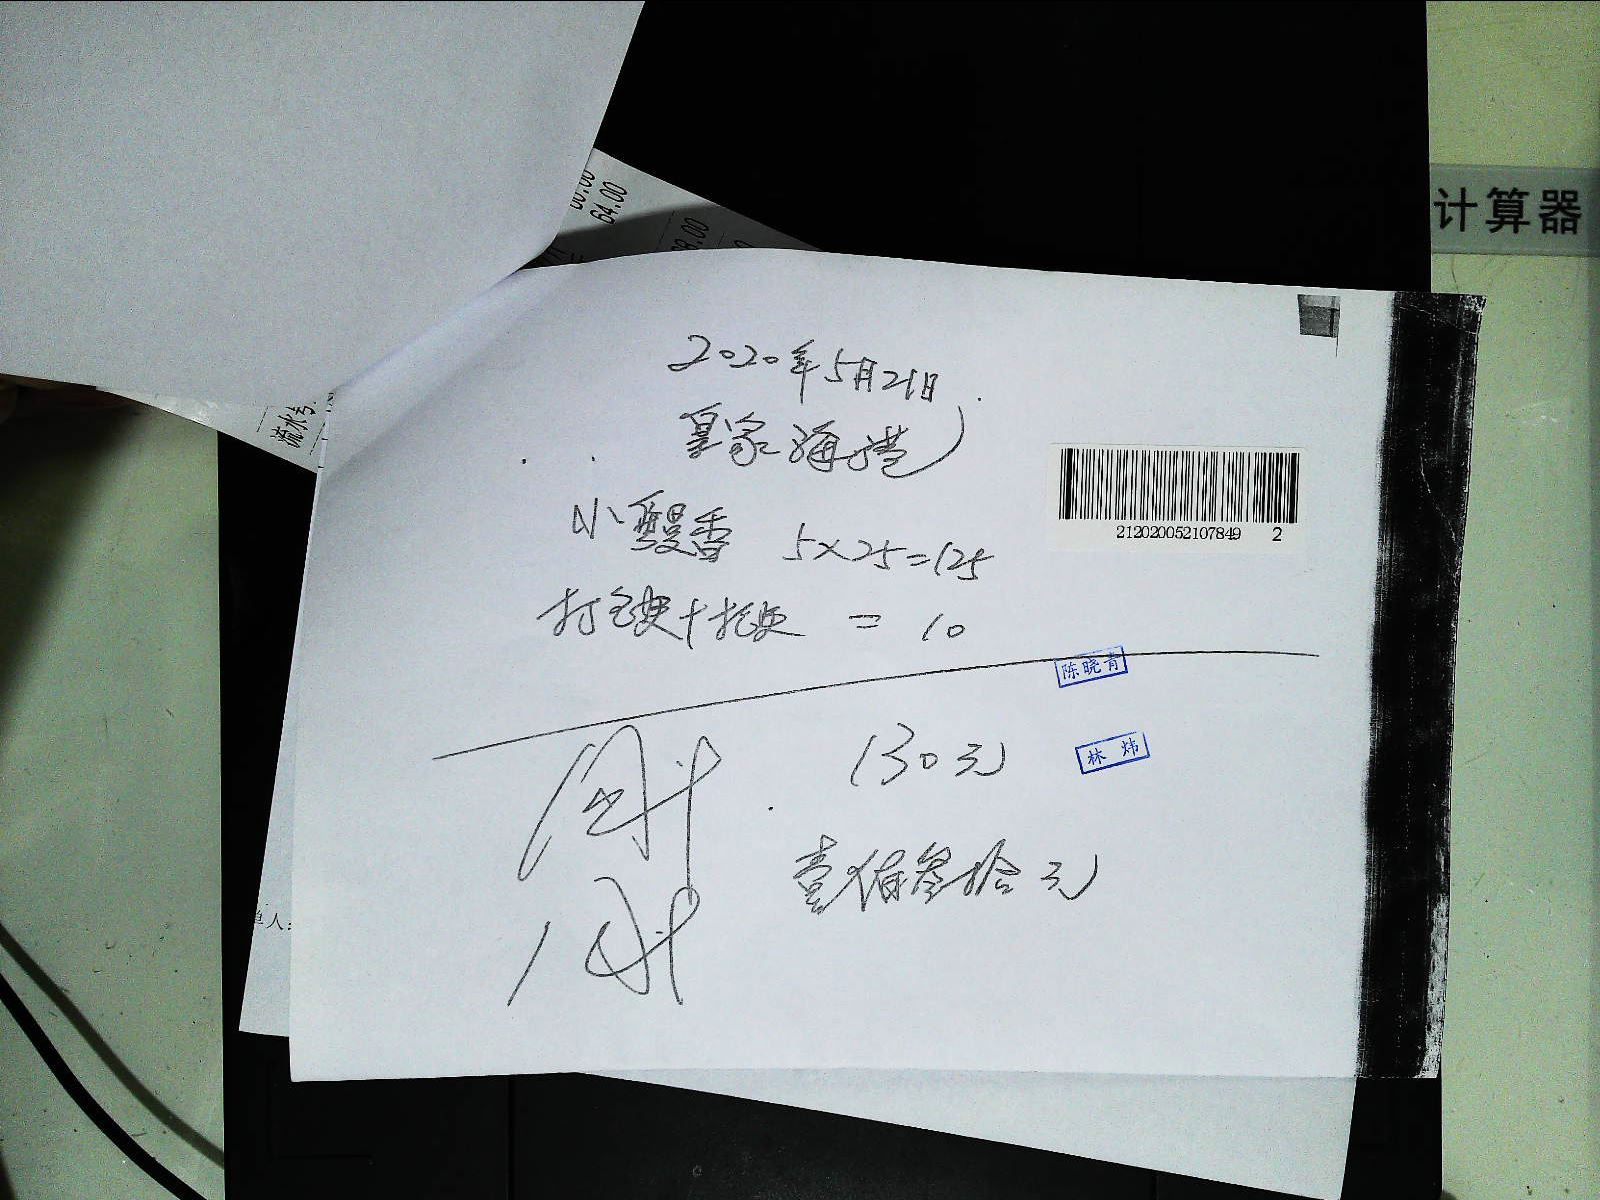 64.00
8.00
计算器
2020年5月21日
皇家海港
流水号:
小馒香 5×25=125
212020052107849 2
打包费+托盘 = 10
陈晓青
130元
林炜
壹佰叁拾元
单人: